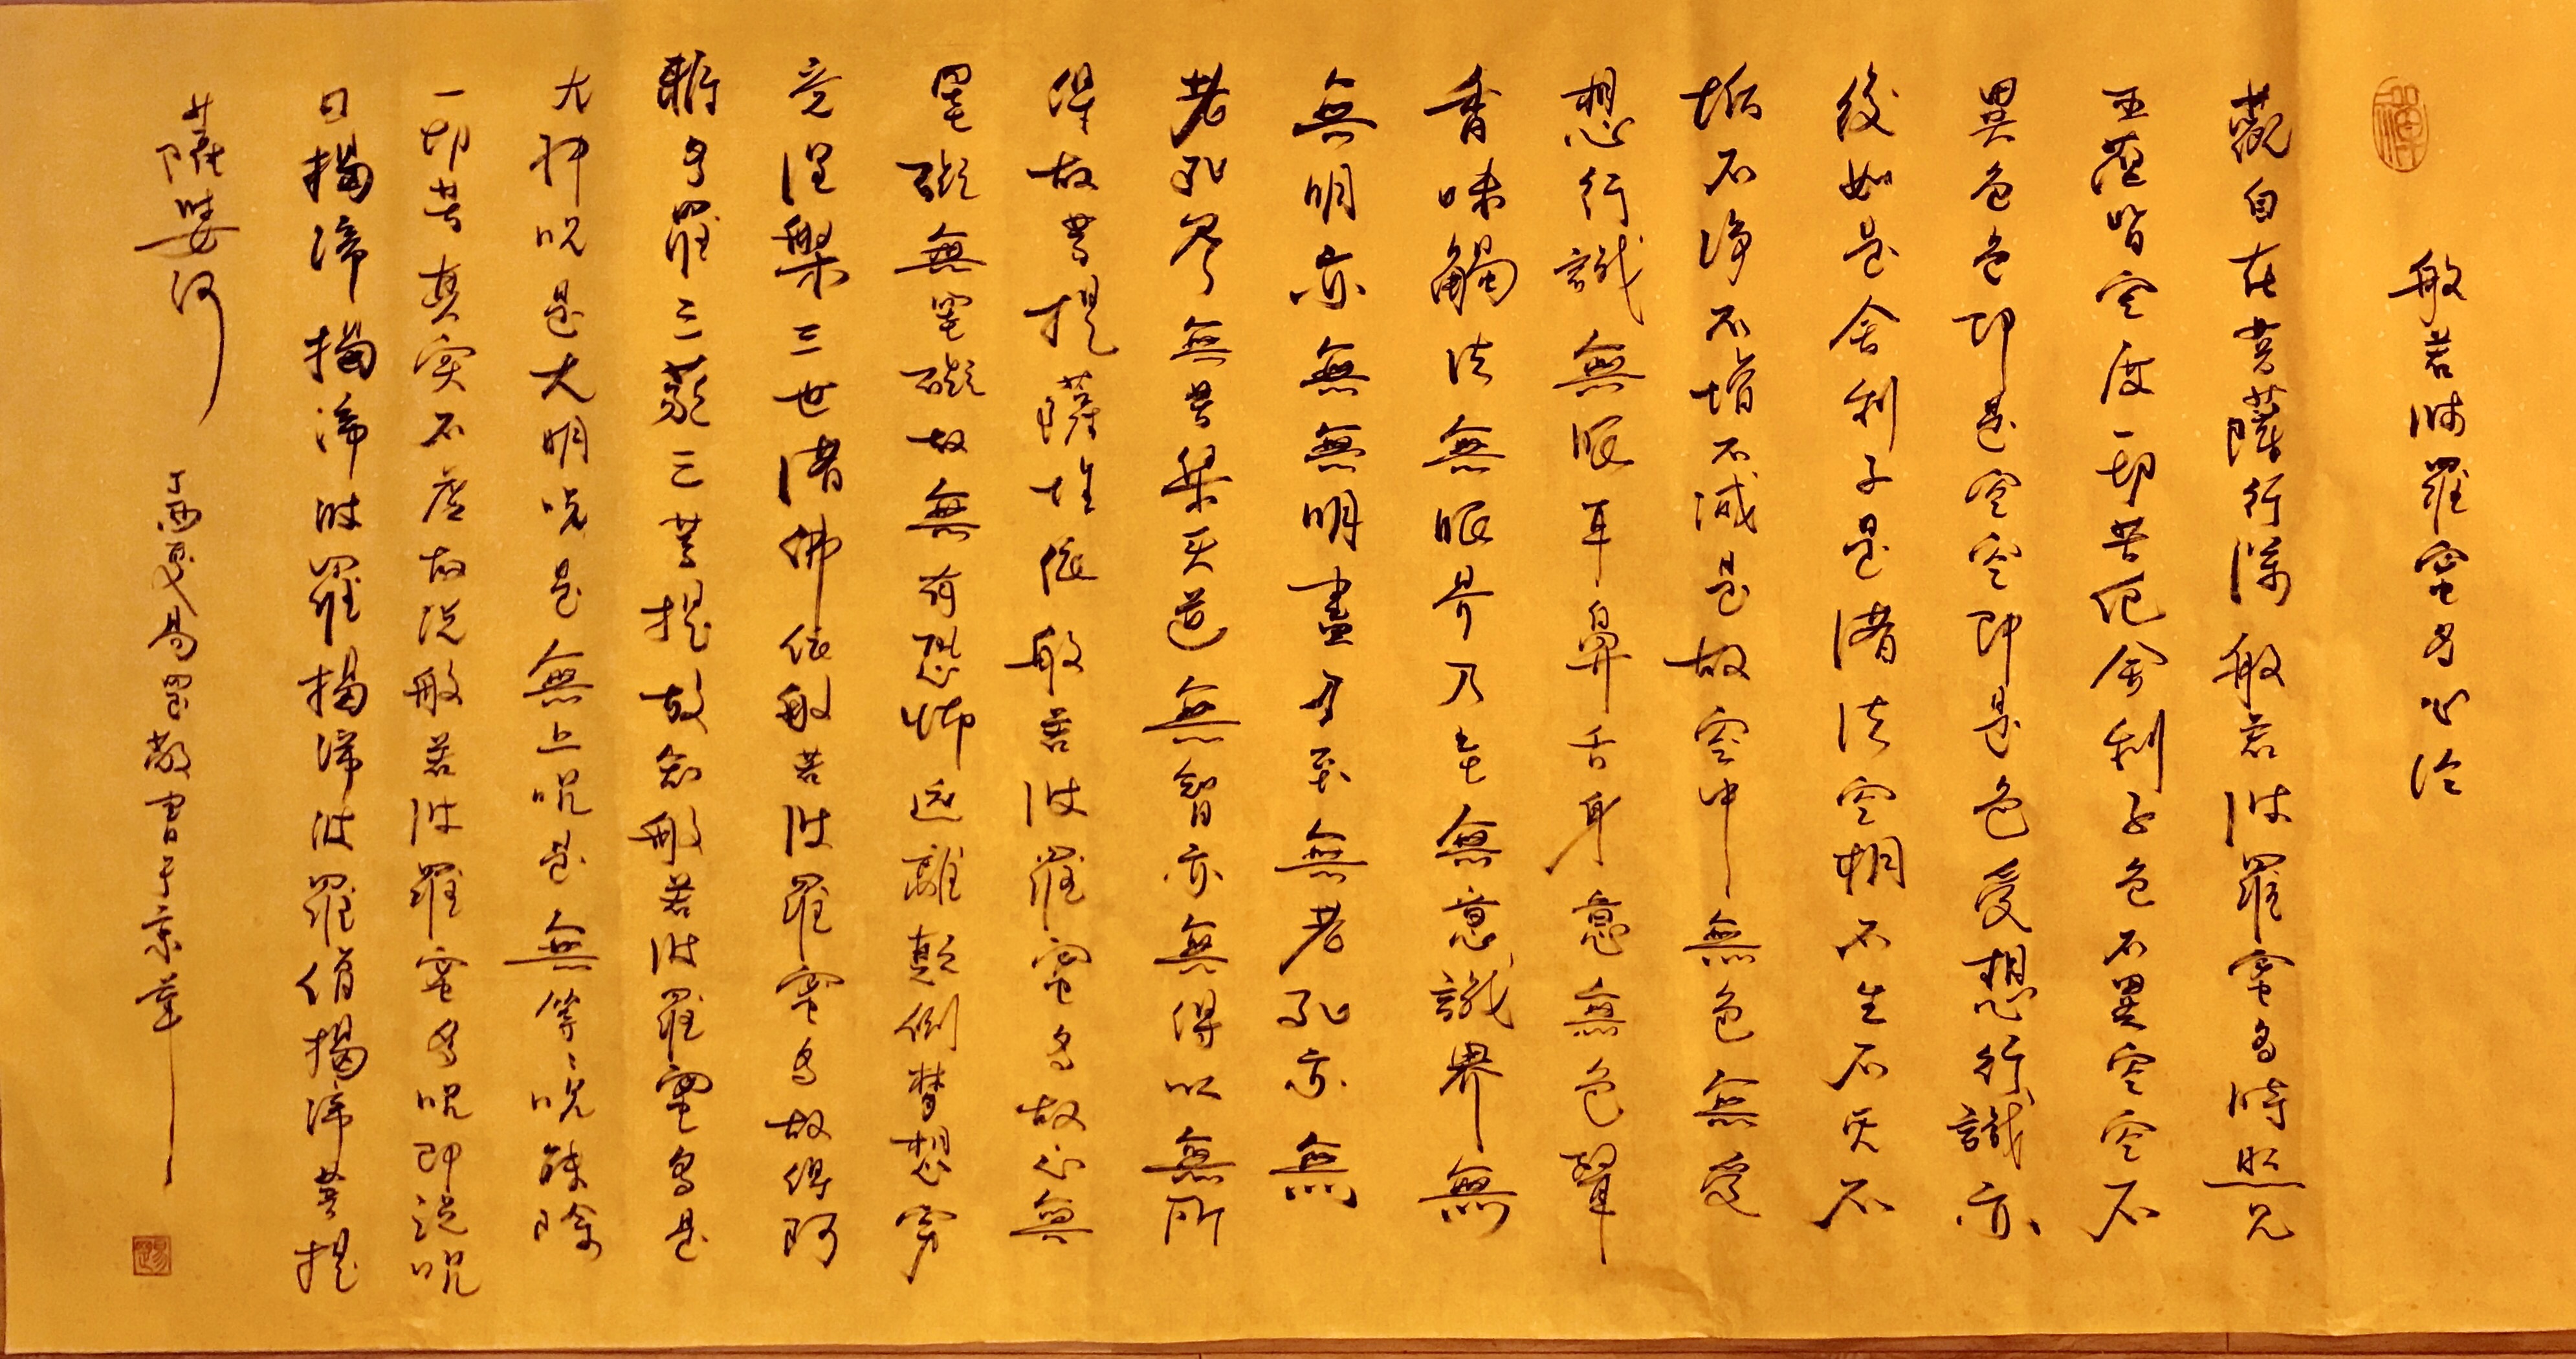 禪
般若波羅蜜多心經
觀自在菩薩行深般若波羅蜜多時照見
五蘊皆空度一切苦厄舍利子色不異空空不
異色色即是空空即是色受想行識亦
復如是舍利子是諸法空相不生不滅不
垢不淨不增不減是故空中無色無受
想行識無眼耳鼻舌身意無色聲
香味觸法無眼界乃至無意識界無
無明亦無無明盡乃至無老死亦無
老死盡無苦集滅道無智亦無得以無所
得故菩提薩埵依般若波羅蜜多故心無
罣礙無罣礙故無有恐怖遠離顛倒夢想究
竟涅槃三世諸佛依般若波羅蜜多故得阿
耨多羅三藐三菩提故知般若波羅蜜多是
大神咒是大明咒是無上咒是無等々咒能除
一切苦真實不虛故說般若波羅蜜多咒即說咒
曰揭諦揭諦波羅揭諦波羅僧揭諦菩提
薩婆訶
書于